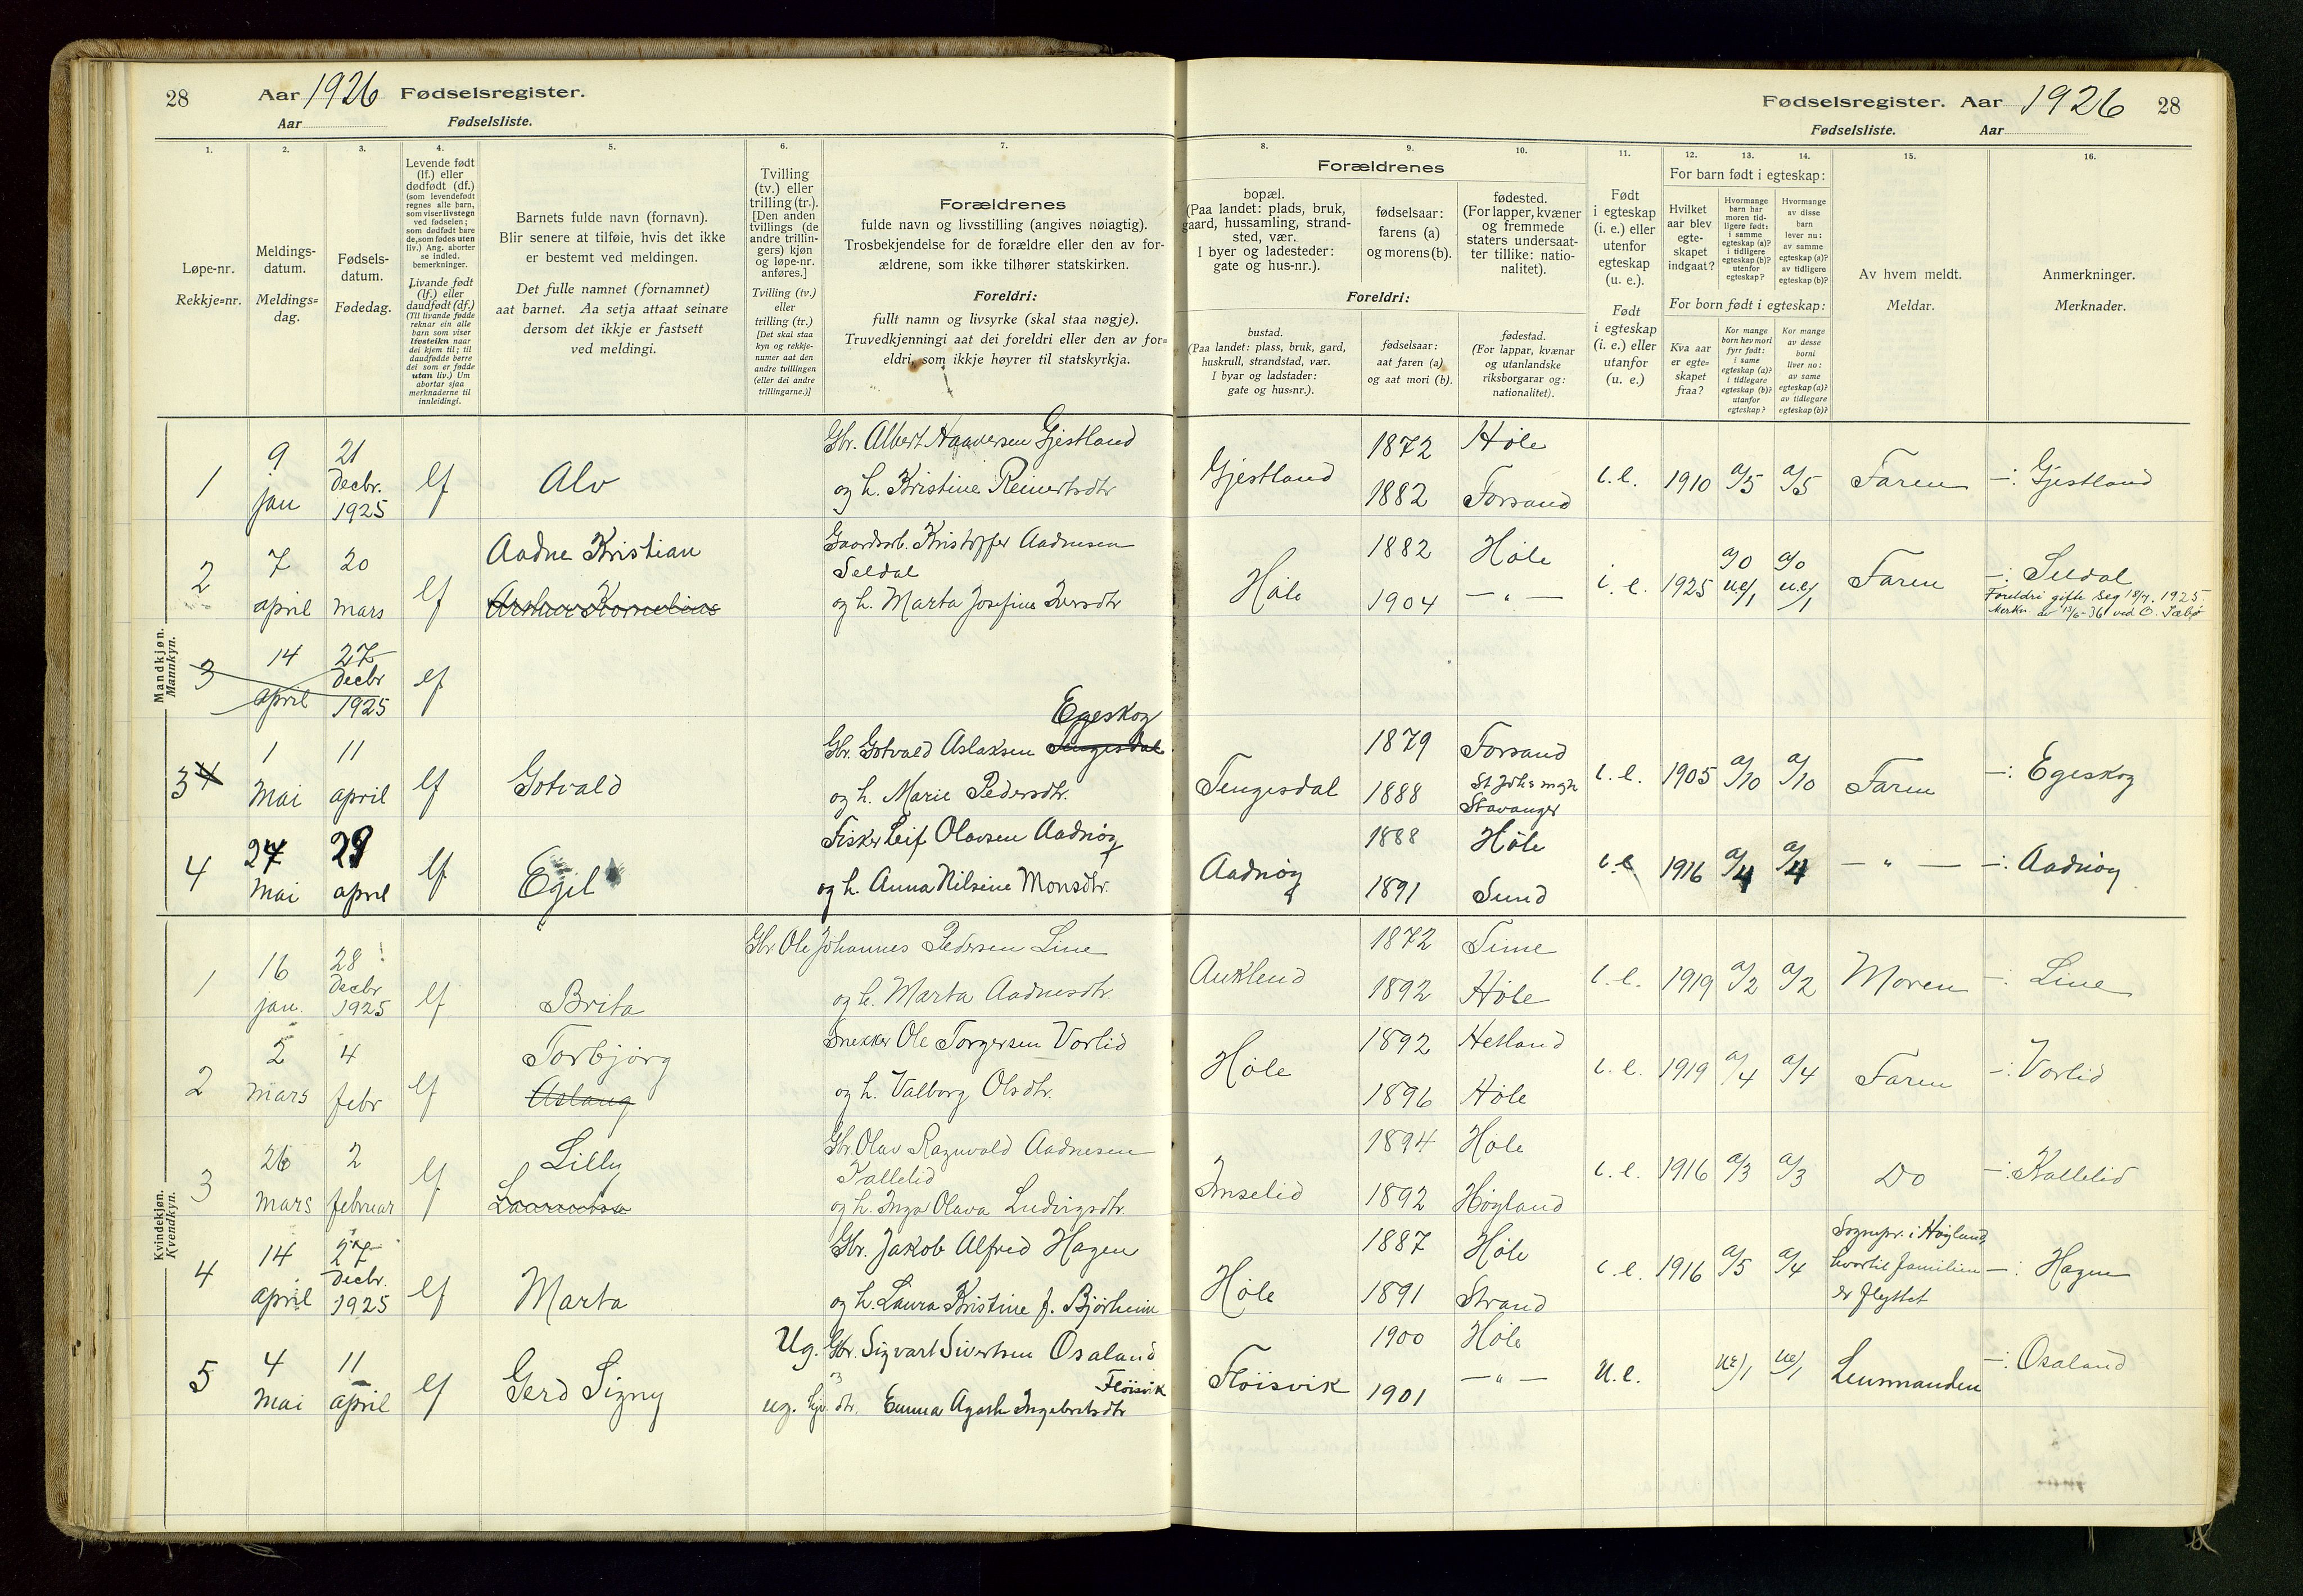 28 Aar 1926 Fødselsregister.
Aar Fødselsliste.
1.
Løpe-nr.
Rekkje=nr.
2.
Meldings-
datum.
Meldings=
dag.
3.
Fødsels-
datum.
Fødedag.
4.
Levende født
(lf.) eller
dødfødt (df.)
(som levendefødt
regnes alle barn,
som viser livstegn
ved fødselen;
som dødfødt bare
de, som fødes uten
liv.) Ang. aborter
se indled.
bemerkninger.
Livande født
(lf.) eller
daudfødt (df.)
(Til livande fødde
reknar ein alle
barn som viser
livsteikn naar
dei kjem til; til
daudfødde berre
dei som er fødde
utan liv.) Um
abortar sjaa
merknaderne til
innleidingi.
5.
Barnets fulde navn (fornavn).
Blir senere at tilføie, hvis det ikke
er bestemt ved meldingen.
Det fulle namnet (fornamnet)
aat barnet. Aa setja attaat seinare
dersom det ikkje er fastsett
ved meldingi.
6.
Tvilling
(tv.) eller
trilling (tr.).
[Den anden
tvillings (de
andre trillin-
gers) kjøn
og løpe-nr.
anføres.]
Tvilling (tv.)
eller
trilling (tr.)
[Det skal staa
kyn og rekkje-
numer aat den
andre tvillingen
(eller dei andre
trillingarne.)]
7.
Forældrenes
fulde navn og livsstilling (angives nøiagtig).
Trosbekjendelse for de forældre eller den av for-
ældrene, som ikke tilhører statskirken.
Foreldri:
fullt namn og livsyrke (skal staa nøgje).
Truvedkjenningi aat dei foreldri eller den av for=
eldri, som ikkje høyrer til statskyrkja.
Mandkjøn.
Mannkyn.
1 9 jan 21 Decbr. 1925 lf Alv
Gbr. Albert Haaversen Gjestland
og h. Kristine Reinertsdtr
2 7 april 20 mars lf Aadne Kristian
Arthur Kornelius
Gaardsarb. Kristoffer Aadnesen
Seldal
og h. Marta Josefine Iversdtr
3 14 april 27 Decbr 1925 lf
3 4 1 Mai 11 april lf Gotvald
Egeskog
Gbr. Gotvald Aslaksen Tengesdal
og h. Marie Pedersdtr.
4 27 Mai 29 april lf Egil
Fisker Leif Olavsen Aadnøy
og h. Anna Nilsine Monsdtr.
Kvindekjøn.
Kvendkyn.
1 16 jan. 28 Decbr 1925 lf Brita
Gbr. Ole Johannes Pedersen Line
og h. Marta Aadnesdtr.
2 2 mars 4 febr lf Torbjørg
Aslaug
Snekker Ole Torgersen Vorlid
og h. Valborg Olsdtr.
3 26 mars 2 februar lf Lilly
Gbr. Olav Ragnvald Aadnesen
Kallelid
og h. Inga Olava Ludvigsdtr.
4 14 april 27 Decbr. 1925 lf Marta
Gbr. Jakob Alfred Hagen
og h. Laura Kristine f. Bjørheim
5 4 Mai 11 april lf Gerd Signy
Ug. Gbr. Sigvart Sivertsen Osaland
Fløisvik
ug. dtr. Emma Agathe Ingebretsdtr
Fødselsregister. Aar 1926 28
Fødselsliste. Aar
8.
Forældrenes
bopæl.
(Paa landet: plads, bruk,
gaard, hussamling, strand-
sted, vær.
I byer og ladesteder:
gate og hus-nr.).
Foreldri:
bustad.
(Paa landet: plass, bruk, gard,
huskrull, strandstad, vær.
I byar og ladstader:
gate og hus=nr.).
9.
fødselsaar:
farens (a)
og morens (b).
fødselsaar:
aat faren (a)
og aat mori (b).
10.
fødested.
(For lapper, kvæner
og fremmede
staters undersaat-
ter tillike: natio-
nalitet).
fødestad.
(For lappar, kvænar
og utanlandske
riksborgarar og:
nationalitet).
11.
Født
i egteskap
(i. e.) eller
utenfor
egteskap
(u. e.).
Født
i egteskap
(i. e.) eller
utanfor
egteskap
(u. e.)
12. 13. 14.
For barn født i egteskap:
Hvilket
aar blev
egte-
skapet
indgaat?
Hvormange
barn har
moren tid-
ligere født:
i samme
egteskap (a)?
i tidligere
egteskap (b)?
utenfor
egteskap?
Hvormange
av disse
barn
lever nu:
av samme
egteskap (a)?
av tidligere
egteskap (b)?
For born født i egteskap:
Kva aar
er egte=
skapet
fraa?
Kor mange
born hev mori
fyrr født:
i same
egteskap (a)?
i tidlegare
egteskap (b)?
utanfor
egteskap?
Kor mange
av desse
borni
liver no:
av same
egteskap (a)?
av tidlegare
egteskap (b)?
15.
Av hvem meldt.
Meldar.
16.
Anmerkninger.
Merknader.
Gjestland 1872 1882 Høle Forsand i. e. 1910 a/5 a/5 Faren —: Gjestland
Høle 1882 1904 Høle — " — i. e. 1925 a/0 ue/1 a/0 ue/1 Faren —: Seldal
Foreldri gifte seg 18/4. 1925.
Merkn. av 13/6-36 ved O. Sæbø
Tengesdal 1879 1888 Forsand St. Joh.s mgh Stavanger i. e. 1905 a/10 a/10 Faren —: Egeskog
Aadnøy 1888 1891 Høle Sund i. e. 1916 a/4 a/4 — " — —: Aadnøy
Auklend 1872 1892 Time Høle i. e. 1919 a/2 a/2 Moren —: Line
Høle 1892 1896 Hetland Høle i. e. 1919 a/4 a/4 Faren —: Vorlid
Imselid 1894 1892 Høle Høgland i. e. 1916 a/3 a/3 Do —: Kallelid
Høle 1887 1891 Høle Strand i. e. 1916 a/5 a/4 Sognepr. i Høgland,
hvortil familien
er flyttet —: Hagen
Fløisvik 1900 1901 Høle — " — u. e. ue/1 ue/1 Lensmanden —: Osaland